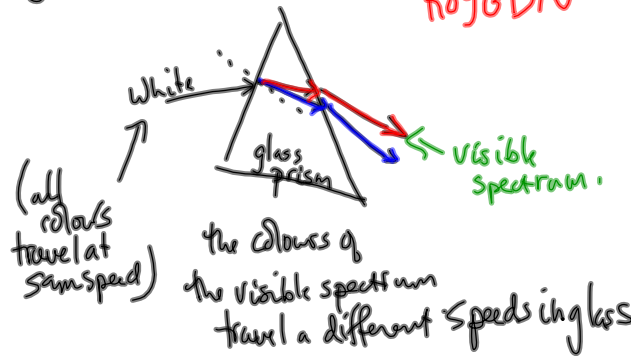 White
glass
prism
visible
spectrum.
(all
colours
travel at
samspeed)
the colours of
the visible spectrum
travel a different speeds in glass